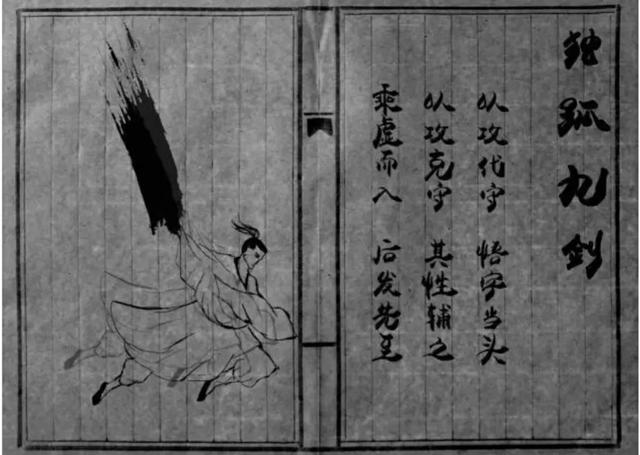 独孤九剑
以攻代守 悟字当头
以攻克守 其性辅之
乘虚而入 后发先至